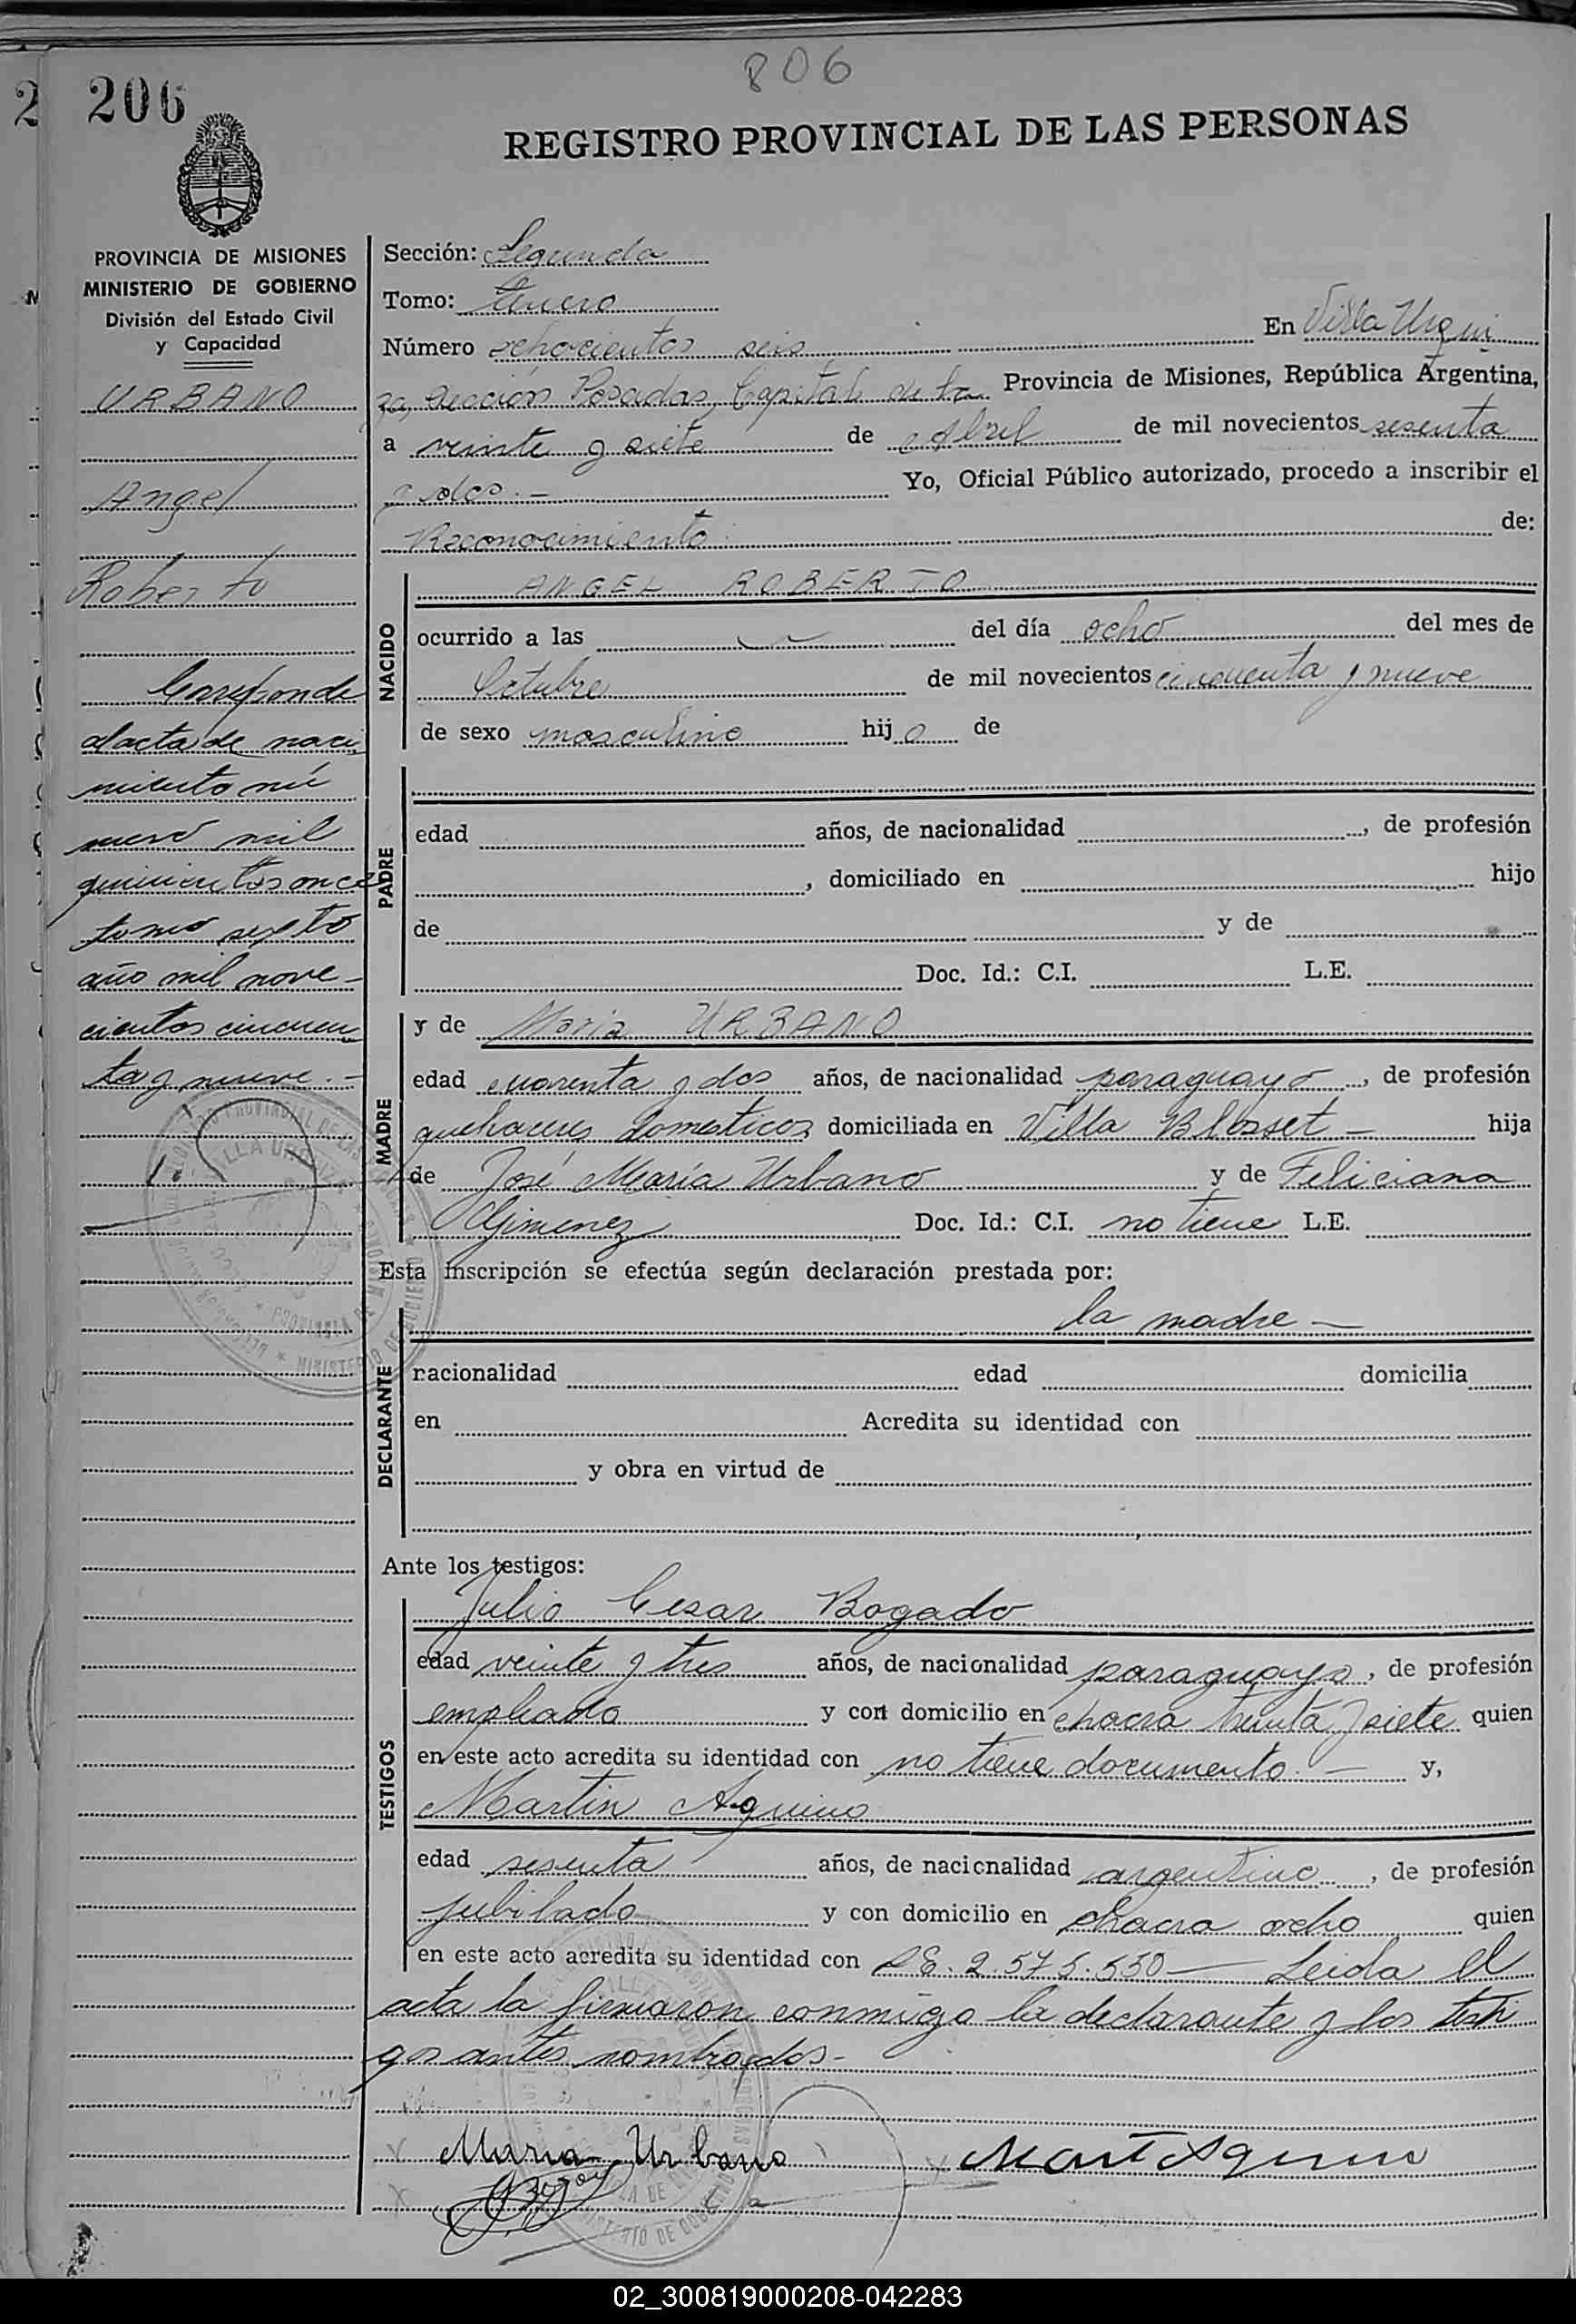 806
206
REGISTRO PROVINCIAL DE LAS PERSONAS
PROVINCIA DE MISIONES
MINISTERIO DE GOBIERNO
División del Estado Civil
y Capacidad
URBANO
Angel
Roberto
Corresponde
al acta de naci
miento nú
mero mil
quinientos once
tomo sexto
año mil nove-
cientos cincuen
ta y nueve.-
Sección: Segunda
Tomo:
Número ochocientos seis En Villa Urqui
za, Sección Posadas, Capital de la Provincia de Misiones, República Argentina,
a veinte y siete de Abril de mil novecientos sesenta
y dos.- Yo, Oficial Público autorizado, procedo a inscribir el
Reconocimiento de:
NACIDO
ANGEL ROBERTO
ocurrido a las del día ocho del mes de
Octubre de mil novecientos cincuenta y nueve
de sexo masculino hijo de
PADRE
edad años, de nacionalidad , de profesión
, domiciliado en hijo
de y de
Doc. Id.: C.I. L.E.
MADRE
y de Maria URBANO
edad cuarenta y dos años, de nacionalidad paraguaya, de profesión
quehaceres domesticos domiciliada en Villa Blosset - hija
de José María Urbano y de Feliciana
Gimenez Doc. Id.: C.I. no tiene L.E.
Esta inscripción se efectúa según declaración prestada por:
DECLARANTE
la madre -
nacionalidad edad domicilia
en Acredita su identidad con
y obra en virtud de
Ante los testigos:
TESTIGOS
Julio Cesar Bogado
edad veinte y tres años, de nacionalidad paraguaya, de profesión
empleado y con domicilio en chacra treinta y siete quien
en este acto acredita su identidad con no tiene documento.- y,
Martin Aquino
edad sesenta años, de nacionalidad argentino, de profesión
jubilado y con domicilio en chacra ocho quien
en este acto acredita su identidad con L.E. 2.575.530 - Leida el
acta la firmaron conmigo la declarante y los testi
gos antes nombrados-
Maria Urbano
Mart Aquino
02_300819000208-042283